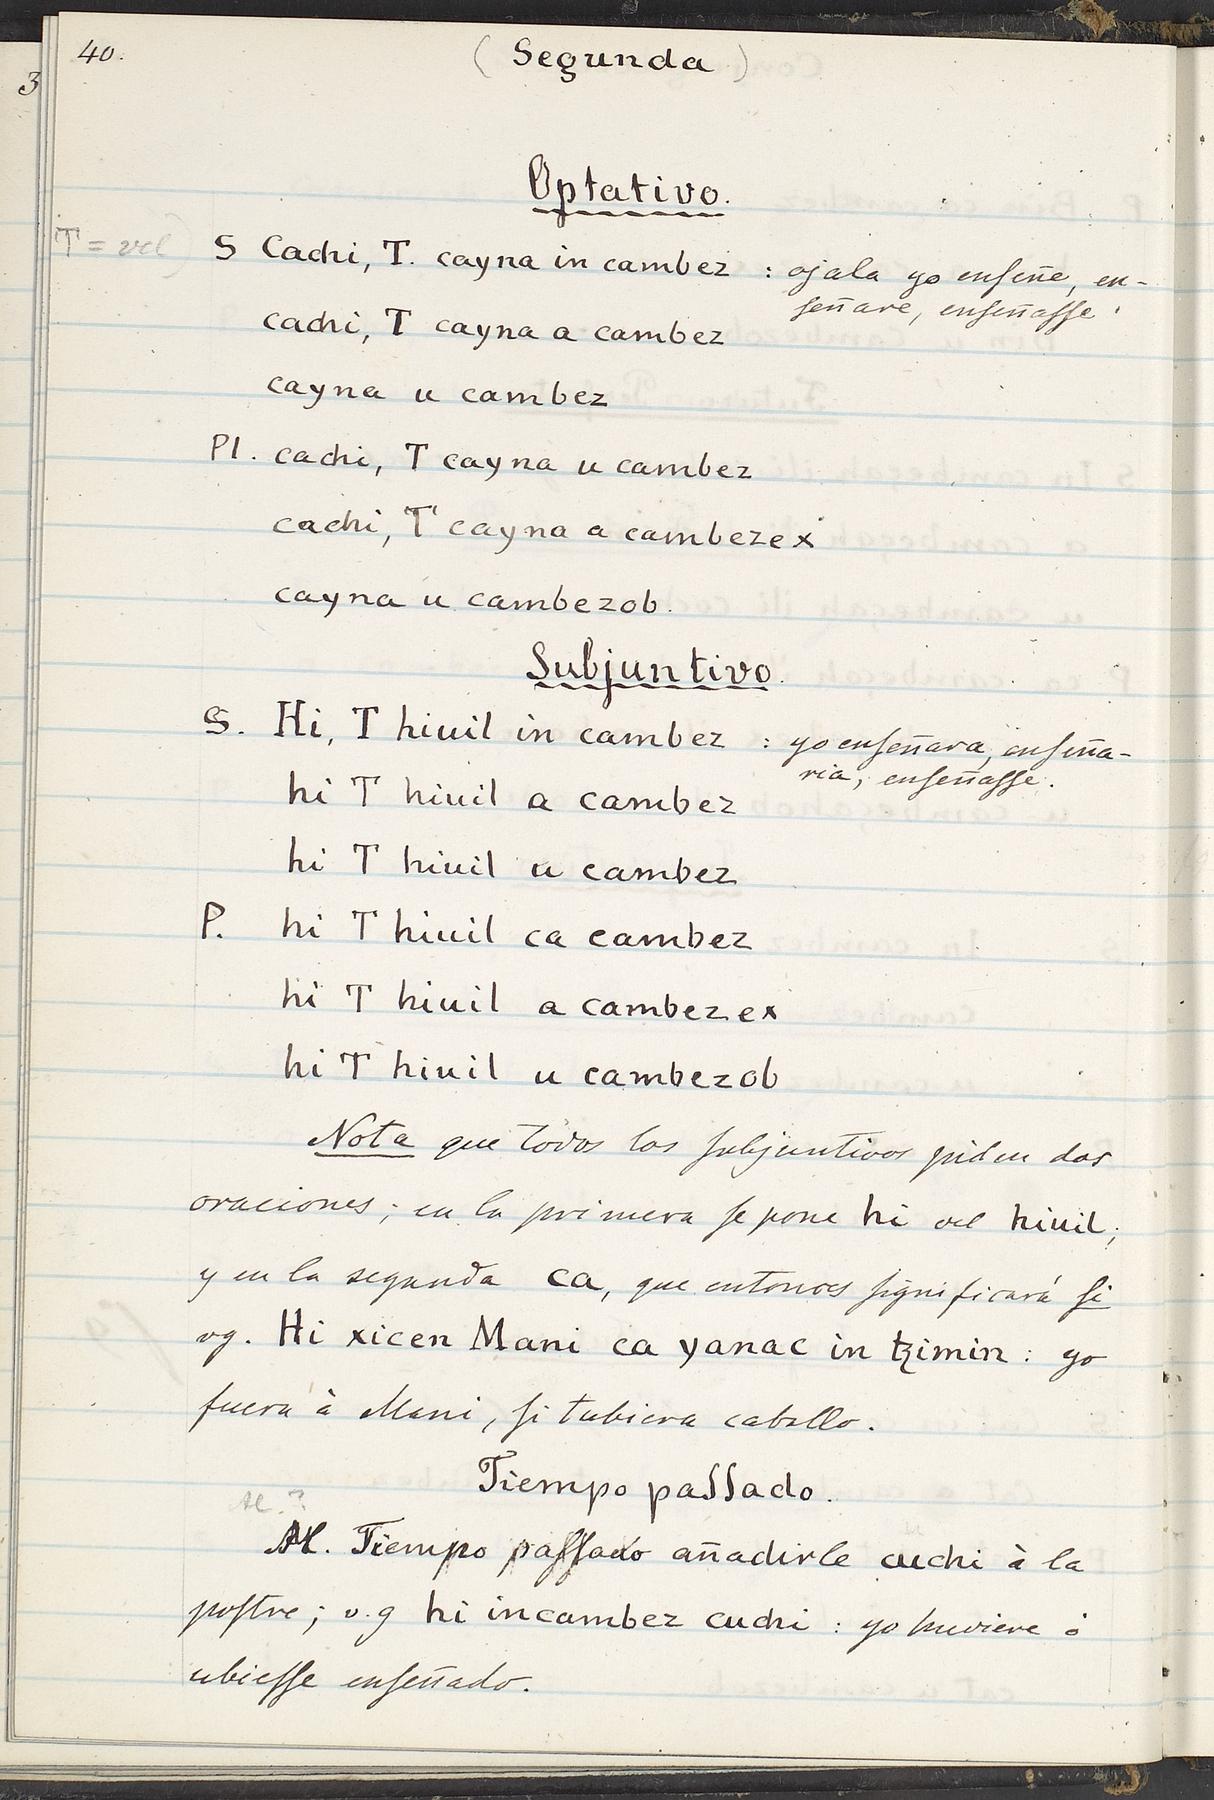 40.
(Segunda)
Optativo.
T = vel)
S Cachi, T. cayna in cambez : ojala yo enseñe, en-
señare, enseñasse.
cachi, T cayna a cambez
cayna u cambez
Pl. cachi, T cayna u cambez
cachi, T cayna a cambezex
cayna u cambezob.
Subjuntivo.
S. Hi, T hiuil in cambez : yo enseñara, enseña-
ria, enseñasse.
hi T hiuil a cambez
hi T hiuil u cambez
P. hi T hiuil ca cambez
hi T hiuil a cambezex
hi T hiuil u cambezob
Nota que todos los subjuntivos piden dos
oraciones; en la primera se pone hi vel hiuil;
y en la segunda ca, que entonces significará si
vg. Hi xicen Mani ca yanac in tzimin: yo
fuera à Mani, si tubiera caballo.
Tiempo passado.
Al ?
Al. Tiempo passado añadirle cuchi à la
postre; v.g hi incambez cuchi : yo huviere ò
ubiesse enseñado.
3